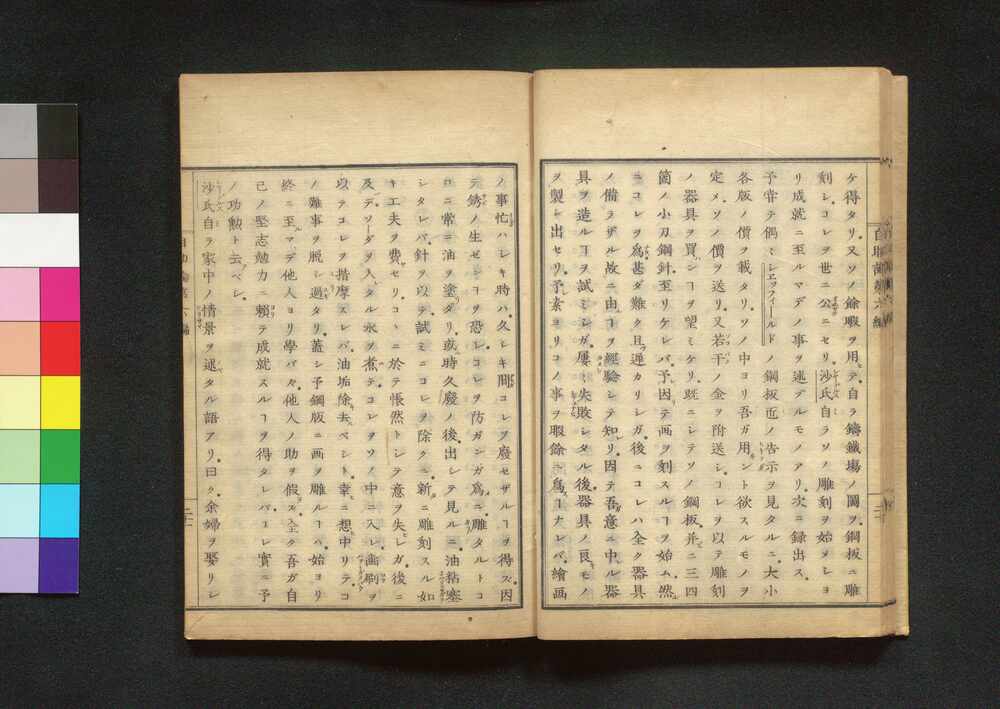 ケ得タリ又ソノ餘暇ヲ用テ自ラ鑄鐵塲ノ圖ヲ鋼版ニ雕
刻シコレヲ世ニ公ニセリ沙氏自ラソノ雕刻ヲ始メシヨ
リ成就ニ至ルマデノ事ヲ述デルモノアリ次ニ録出ス
予甞テ偶ミシエッフィールドノ鋼版匠ノ告示ヲ見タルニ大小
各版ノ價ヲ載タリソノ中ヨリ吾ガ用ント欲スルモノヲ
定メソノ價ヲ送リ又若干ノ金ヲ附送シコレヲ以テ雕刻
ノ器具ヲ買ンヿヲ望ミケリ既ニシテソノ鋼版并ニ三四
箇ノ小刀鋼針至リケレバ予因テ画ヲ刻スルヿヲ始ム然
ニコレヲ爲甚ダ難ク且遲カリシガ後ニコレハ全ク器具
ノ備ラザル故ニ由ヿヲ經驗シテ知リ因テ吾意ニ中ル器
具ヲ造ルヿヲ試ミシガ屢ミ失敗シタル後器具ノ良モノ
ヲ製シ出セリ予素ヨリコノ事ヲ暇餘ニ爲ヿナレバ繪画
ノ事忙ハシキ時ハ久シキ間コレヲ廢セザルヿヲ得ズ因
テ銹ノ生ゼンヿヲ恐レコレヲ防ガンガ爲ニ雕タルトコ
ロニ常ニ油ヲ塗ダリ或時久廢ノ後出シテ見ルニ油粘塞
シタレバ針ヲ以テ試ミニコレヲ除クニ新ニ雕刻スル如
キ工夫ヲ費セリコヽニ於テ悵然トシテ意ヲ失シガ後ニ
及デソーダヲ入タル水ヲ煮テコレヲソノ中ニ入レ画刷ヲ
以テコレヲ揩摩スレバ油垢除去ベシト幸ニ想中リテコ
ノ難事ヲ脱シ過タリ蓋シ予鋼版ニ画ヲ雕ルヿハ始ヨリ
終ニ至マデ他人ヨリ學バズ他人ノ助ヲ假ズ全ク吾ガ自
己ノ堅志勉力ニ賴テ成就スルヿヲ得タレバコレ實ニ予
ノ功勲ト云ベシ
沙氏自ラ家中ノ情景ヲ述タル語アリ曰ク余婦ヲ娶リシ